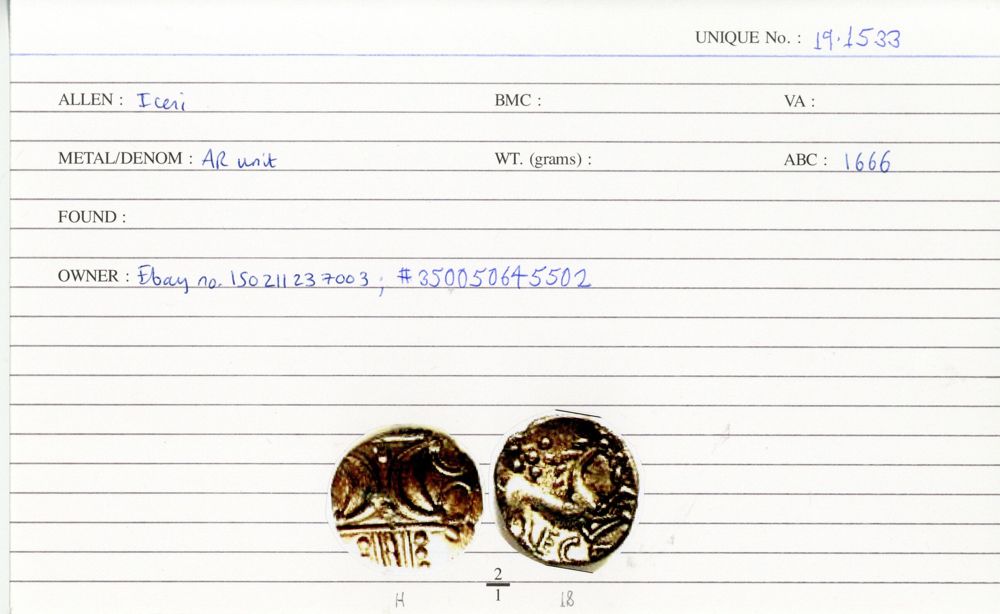 UNIQUE No. : 19.1533
ALLEN : Iceni BMC : VA :
METAL/DENOM : AR unit WT. (grams) : ABC : 1666
FOUND :
OWNER : Ebay no. 150211237003 ; #350050645502
ECE
2
1
H 18